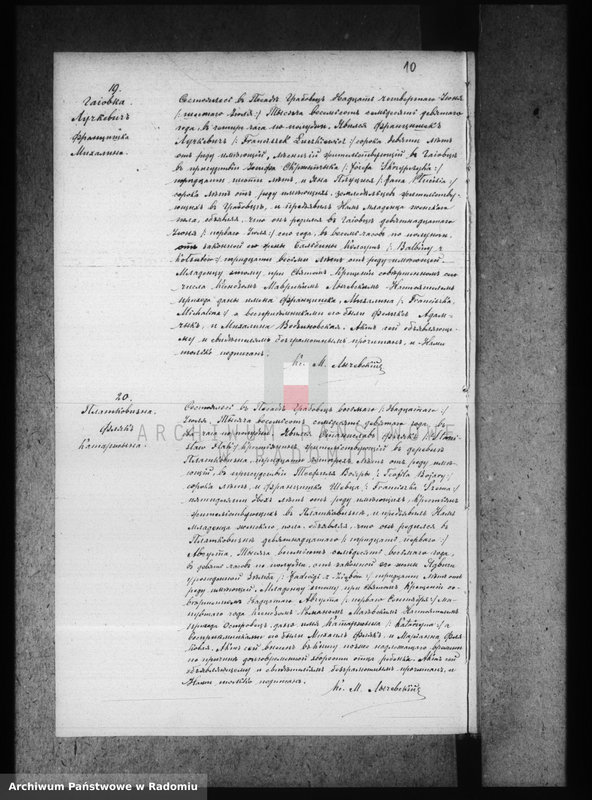 10
19.
Гаіовка.
Лучкевичъ
Францишка
Михалина.
Состоялось въ Посадѣ Грабовцѣ Двадцать четвертаго Іюня
Тысяча восемьсотъ семьдесятъ девятаго
года, въ четыре часа по полудни. Явился Францишекъ
Лучкевичъ /: Franciszek Łuczkiewicz :/ сорока девяти лѣтъ
отъ роду имѣющій, жительствующій въ Гаіовцѣ
въ присутствіи Іосифа /: Józefa
тридцати шести лѣтъ, и Яна /: Jana
сорока лѣтъ отъ роду имѣющихъ, земледѣльцевъ жительству-
ющихъ въ Грабовцѣ, и предъявилъ Намъ младенца женска-
го пола, объявляя, что онъ родился въ Гаіовцѣ девятнадцатаго
Іюня /: перваго Іюля :/ сего года, въ восемь часовъ по полуночи,
отъ законной его жены Бальбины /: Balbiny z
/ тридцати восьми лѣтъ отъ роду имѣющей.
Младенцу этому при Святомъ Крещеніи совершенномъ сего
числа Ксендзомъ Маврикіемъ Лычевскимъ Настоятелемъ
прихода даны имена Францишка, Михалина /: Franciszka,
Michalina :/ а воспріемниками его были Феликсъ Адам-
чыкъ, и Михалина Актъ сей объявляюще-
му и свидѣтелямъ безграмотнымъ прочитанъ, и Нами
только подписанъ.
Кс. М. Лычевскій
20.
Платковизна.
Флякъ
Катаржина.
Состоялось въ Посадѣ Грабовцѣ восьмаго /: Двадцатаго :/
Іюля, Тысяча восемьсотъ семьдесятъ девятаго года, въ
часа по полудни. Явился Станиславъ Флякъ /: Stani-
sław Flak :/ крестьянинъ жительствующій въ деревнѣ
Платковизнѣ, тридцати четырехъ лѣтъ отъ роду имѣ-
ющій, въ присутствіи Теофиля Боіары /: Teofila Bojary
сорока лѣтъ, и Францишка Шевца /: Franciszka Szewca :/
пятидесяти двухъ лѣтъ отъ роду имѣющихъ, крестьянъ
жительствующихъ въ Платковизнѣ, и предъявилъ Намъ
младенца женскаго пола, объявляя, что онъ родился въ
Платковизнѣ девятнадцатаго /: тридцать перваго :/
Августа, Тысяча восемьсотъ семьдесятъ восьмаго года,
въ девять часовъ по полудни, отъ законной его жены Ядвиги
урожденной /: Jadwigi z :/ тридцати лѣтъ отъ
роду имѣющей. Младенцу этому при Святомъ Крещеніи со-
вершенномъ Двадцатаго Августа /: перваго Сентября :/ ми-
нувшаго года Ксендзомъ Романомъ Настоятелемъ
прихода Островецъ, дано имя Катаржина /: Katarzyna :/ а
воспріемниками его были Михаилъ Флякъ, и Маріанна Фля-
кова. Актъ сей внесенъ въ книгу позже надлежащаго времени
по причинѣ долговременной хворости отца ребенка. Актъ сей
объявляющему и свидѣтелямъ безграмотнымъ прочитанъ, и
Нами только подписанъ.
Кс. М. Лычевскій
ARCHIWUM PAŃSTWOWE
W RADOMIU
Archiwum Państwowe w Radomiu